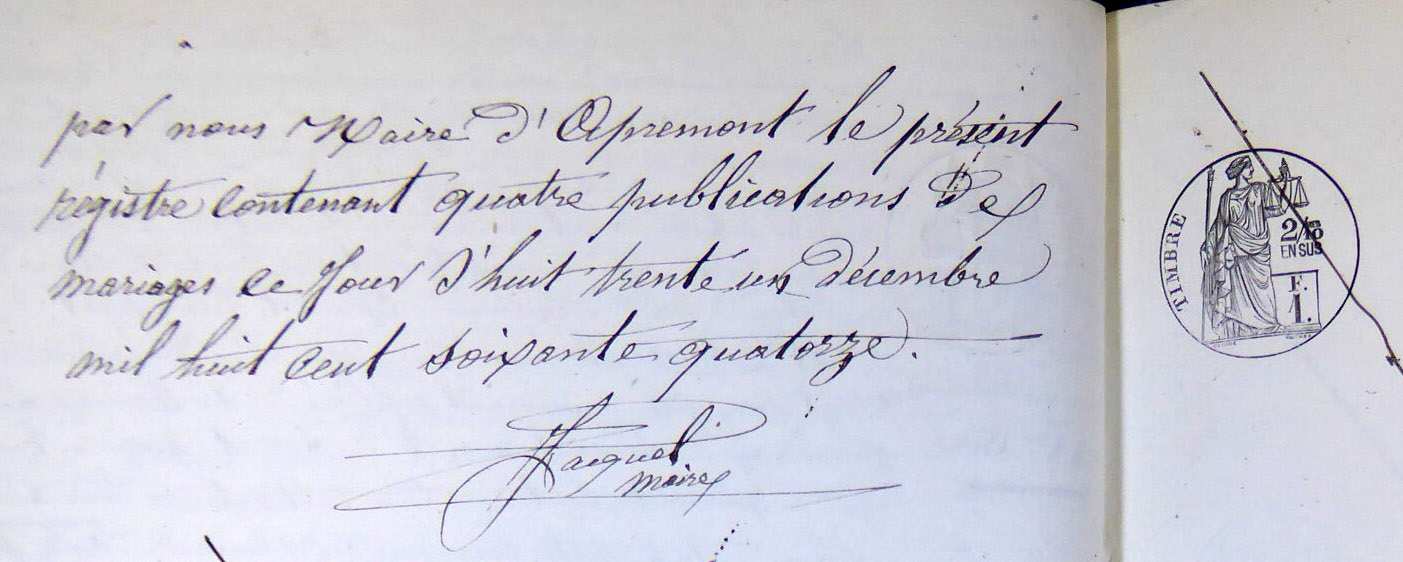 par nous Maire d'Apremont le présent
régistre contenant quatre publications de
mariages ce jour d'huit trente un décembre
mil huit cent soixante quatorze.
Jacquel
maire
TIMBRE
2/10
EN SUS
F.
1.